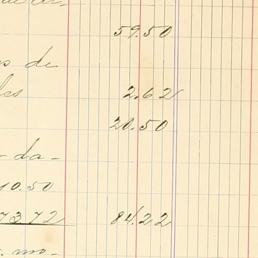 59.50
s de
les 2.62
20.50
- da-
10.50
7372 84.22
mo-